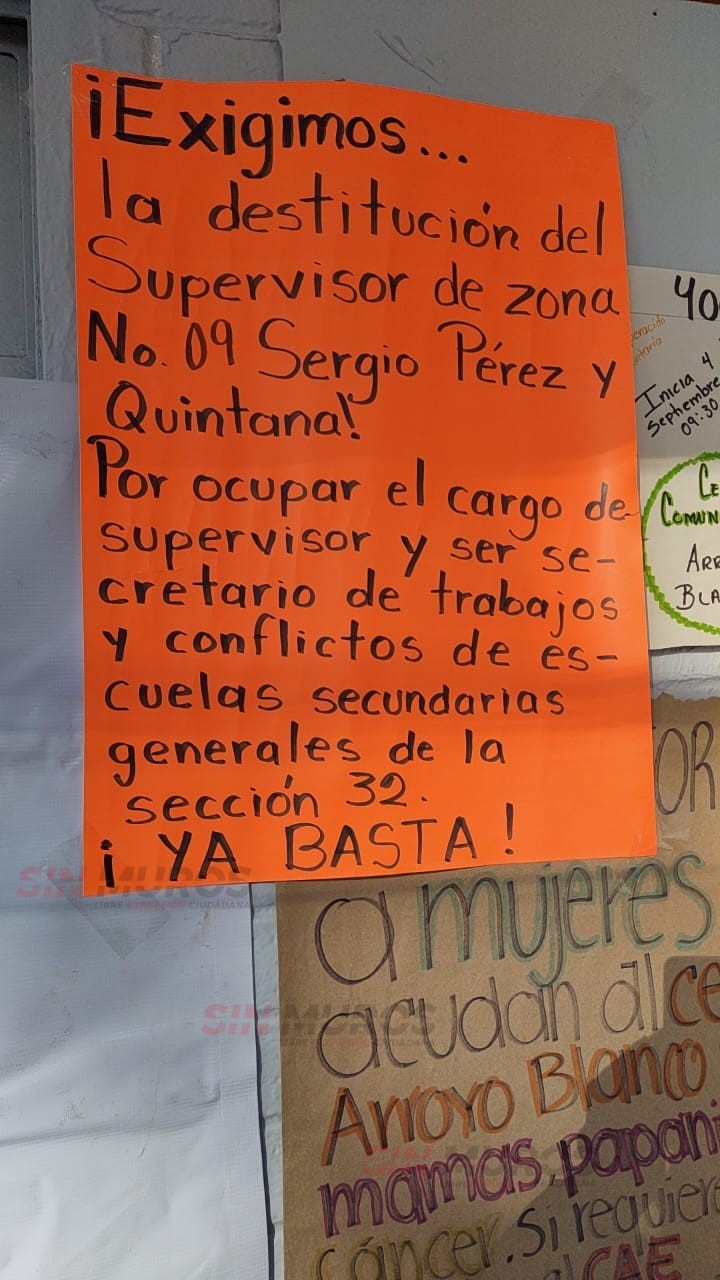 ¡Exigimos...
la destitución del
Supervisor de zona
No. 09 Sergio Pérez y
Quintana!
Por ocupar el cargo de
supervisor y ser se-
cretario de trabajos
y conflictos de es-
cuelas secundarias
generales de la
sección 32.
¡YA BASTA!
Inicia 4
Septiembre
09:30
COMUN
ARR
BLA
a mujeres
acudan al ce
Arroyo Blanco
mamas, papani
cáncer. Si requier
CAE
SIN MUROS
LIBRE EXPRESIÓN CIUDADANA
SIN MUROS
LIBRE EXPRESIÓN CIUDADANA
SIN MUROS